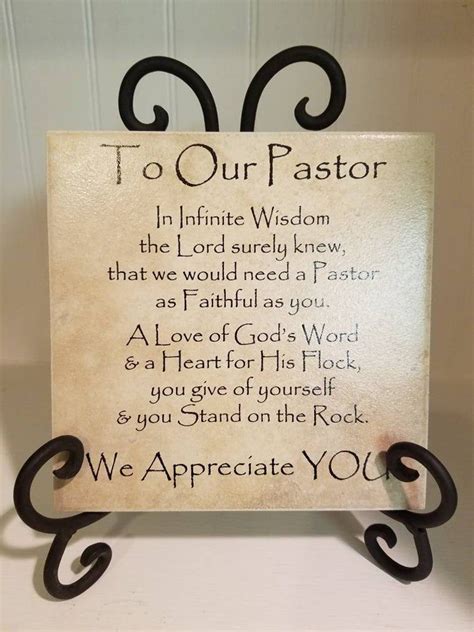 To Our Pastor
In Infinite Wisdom
the Lord surely knew,
that we would need a Pastor
as Faithful as you.
A Love of God's Word
& a Heart for His Flock,
you give of yourself
& you Stand on the Rock.
We Appreciate YOU